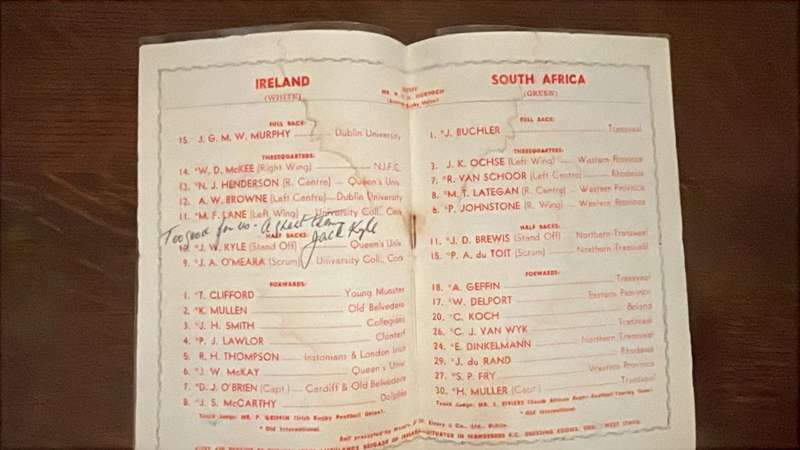 IRELAND
(WHITE)
FULL BACK:
15. J. G. M. W. MURPHY Dublin University
THREEQUARTERS:
14. *W. D. McKEE (Right Wing) N.I.F.C.
13. *N. J. HENDERSON (R. Centre) Queen's Univ.
12. A. W. BROWNE (Left Centre) Dublin University
11. *M. F. LANE (Left Wing) University Coll. Cork
Too good for us - A great team
Jack Kyle
HALF BACKS:
10. *J. W. KYLE (Stand Off) Queen's Univ.
9. *J. A. O'MEARA (Scrum) University Coll., Cork
FORWARDS:
1. *T. CLIFFORD Young Munster
2. *K. MULLEN Old Belvedere
3. *J. H. SMITH Collegians
4. *P. J. LAWLOR Clontarf
5. R. H. THOMPSON Instonians & London Irish
6. *J. W. McKAY Queen's Univ.
7. *D. J. O'BRIEN (Capt.) Cardiff & Old Belvedere
8. *J. S. McCARTHY Dolphin
Touch Judge: MR. P. (Irish Rugby Football Union).
* Old International.
SOUTH AFRICA
(GREEN)
FULL BACK:
1. *J. BUCHLER Transvaal
THREEQUARTERS:
3. J. K. OCHSE (Left Wing) Western Province
7. *R. VAN SCHOOR (Left Centre) Rhodesia
8. *M. T. LATEGAN (R. Centre) Western Province
6. *P. JOHNSTONE (R. Wing) Western Province
HALF BACKS:
11. *J. D. BREWIS (Stand Off) Northern-Transvaal
15. *P. A. du TOIT (Scrum) Northern-Transvaal
FORWARDS:
18. *A. GEFFIN Transvaal
17. *W. DELPORT Eastern Province
20. *C. KOCH Boland
26. *C. J. VAN WYK Transvaal
24. *E. DINKELMANN Northern Transvaal
29. *J. du RAND Rhodesia
27. *S. P. FRY Western Province
30. *H. MULLER (Capt.) Transvaal
Touch Judge: MR. S. (South African Rugby Football Touring Team)
* Old International.